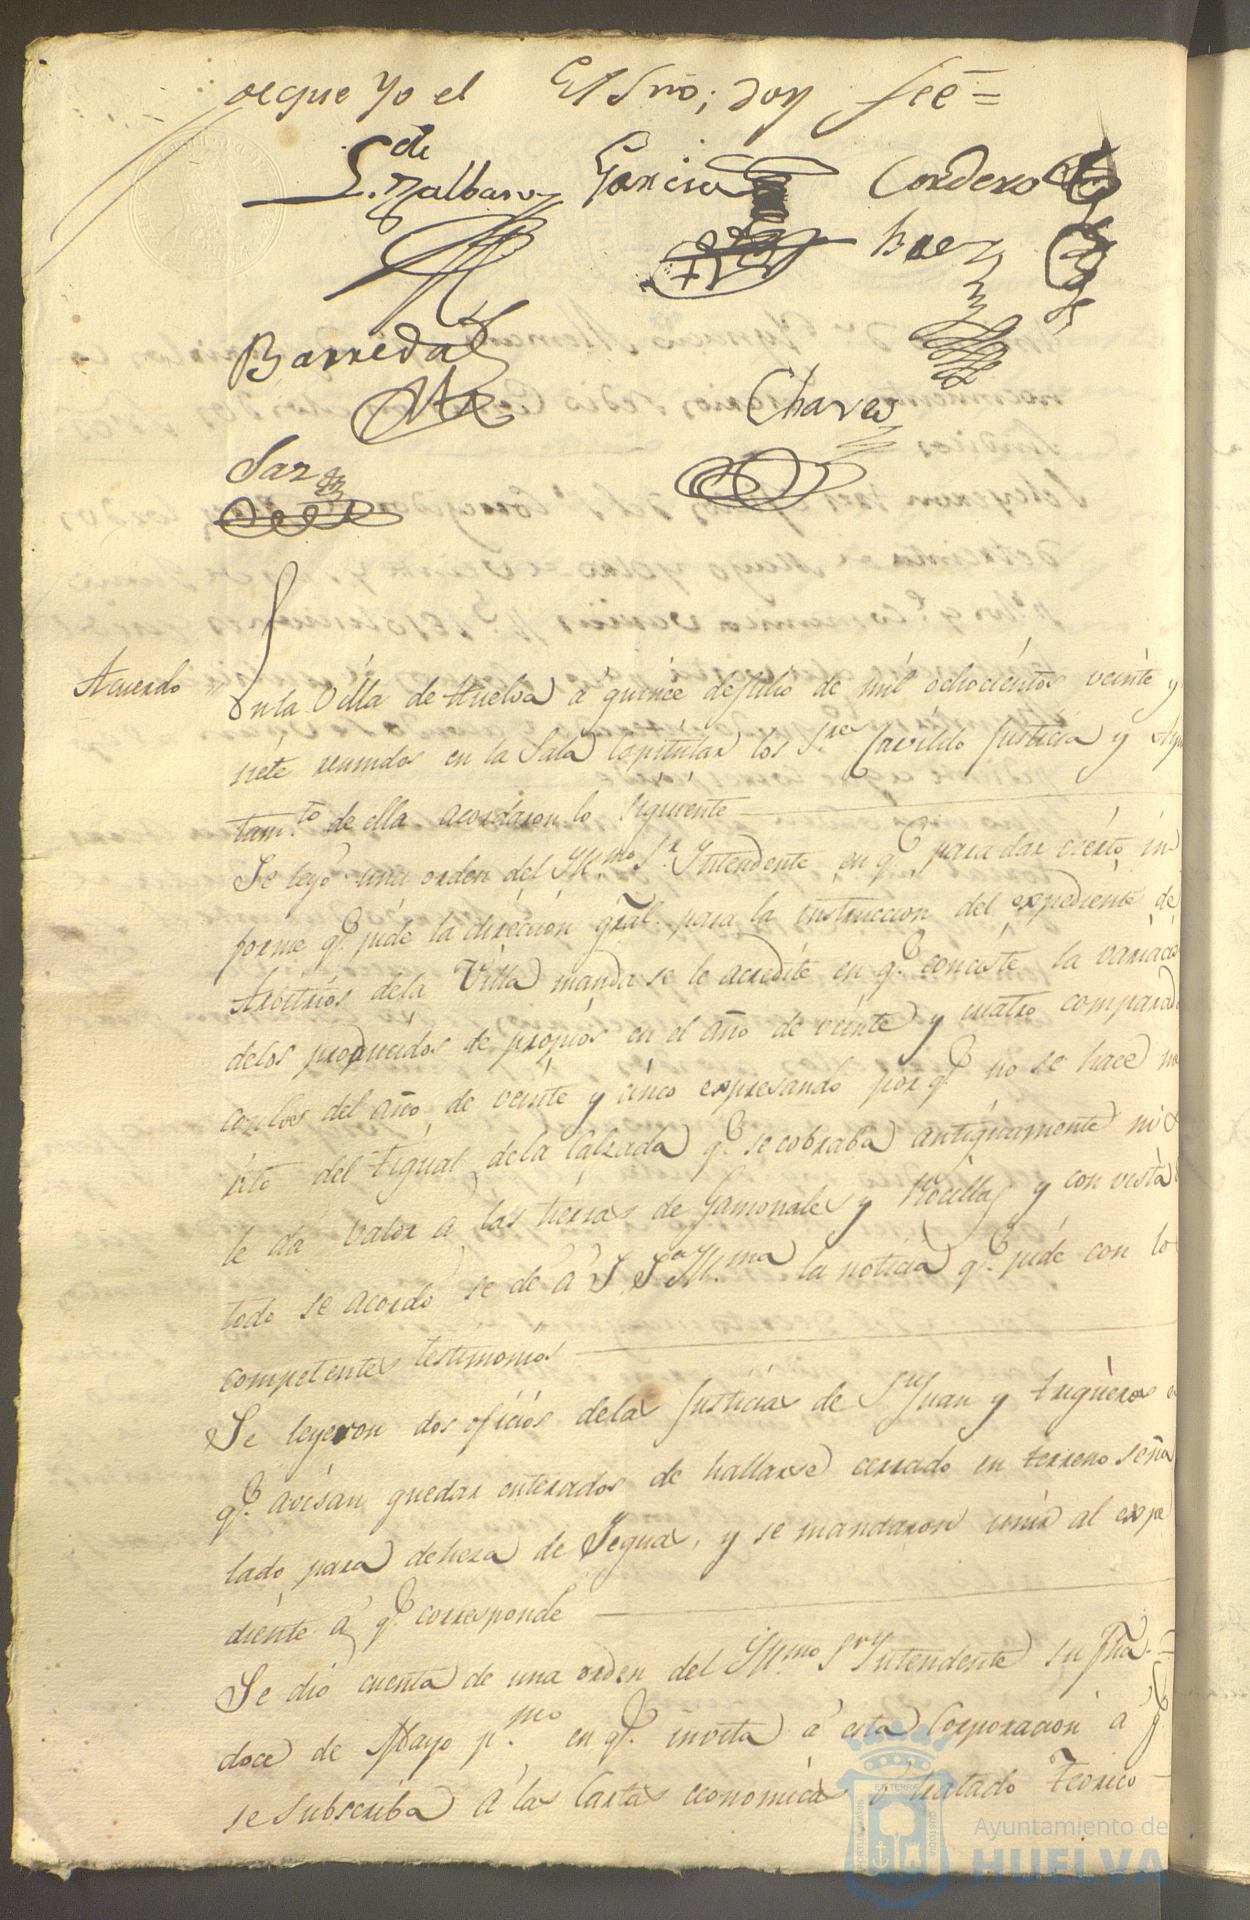 de que yo el Essno; doy feé=
S. de Malbar Garcia Cordero
Baez
Barreda
Chavez
Saz
Acuerdo
En la Villa de Huelva á quince de Julio de mil ochocientos veinte y
siete reunidos en la Sala Capitular los S.res Cavildo Justicia y Ayu
tam.to de ella acordaron lo siguiente
Se leyó una orden del Yll.mo S.r Yntendente en q.e para dar cierto in
forme q.e pide la direccion gral. para la instruccion del expediente de
Arbitrios de la Villa manda se le acredite en q.e conciste la variacion
delos producidos de propios en el año de veinte y cuatro comparado
con los del año de veinte y cinco expresando por q.e no se hace me
rito del tigual de la Calzada q.e se cobraba antiguamente ni se
le dá valor á las tierras de Gamonales y Rocillas y con vista de
todo se acordó se dé á S. S.a Yll.ma la noticia q.e pide con lo
competentes testimonios
Se leyeron dos oficios delas Justicias de S.n Juan y trigueros en
q.e avisan quedar enterados de hallarse cerrado en terreno seña
lado para deheza de Yeguas, y se mandaron unir al expe
diente á q.e corresponde
Se dió cuenta de una orden del Yll.mo S.or Yntendente su fha.
doce de Mayo p.mo en q.e invita á esta Corporacion á q.e
se subscriba á las Cartas economicas ó tratado Teorico
Ayuntamiento de
HUELVA